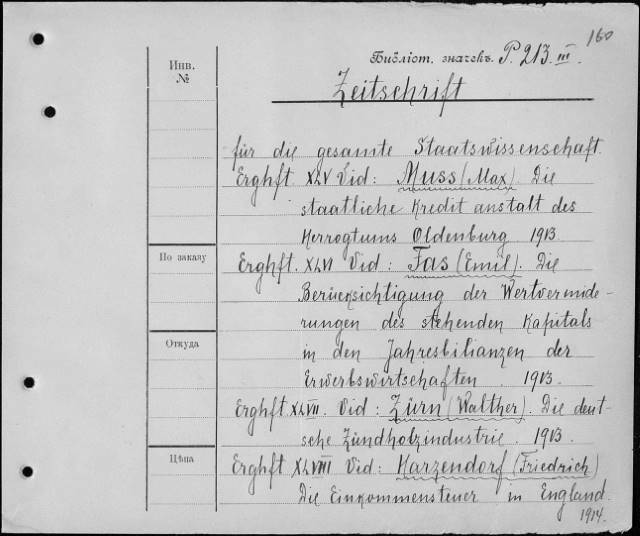 160
Библіот. значекъ. P. 213. III.
Инв.
№
Zeitschrift
für die gesamte Staatswissenschaft.
Erghft. XLV Vid: Muss (Max). Die
staatliche Kredit anstalt des
Herrogtums Oldenburg 1913
По заказу
Erghft. XLVI Vid: Fas (Emil). Die
Berücksichtigung der Wertvermide-
rungen des stehenden Kapitals
Откуда
in den Jahresbilianzen der
Erwerbswirtschaften. 1913.
Erghft. XLVII. Vid: Zürn (Walther). Die deut-
sche Zündholzindustrie. 1913.
Цѣна
Erghft XLVIII Vid: Harzendorf (Friedrich)
Die Einkommensteuer in England.
1914.